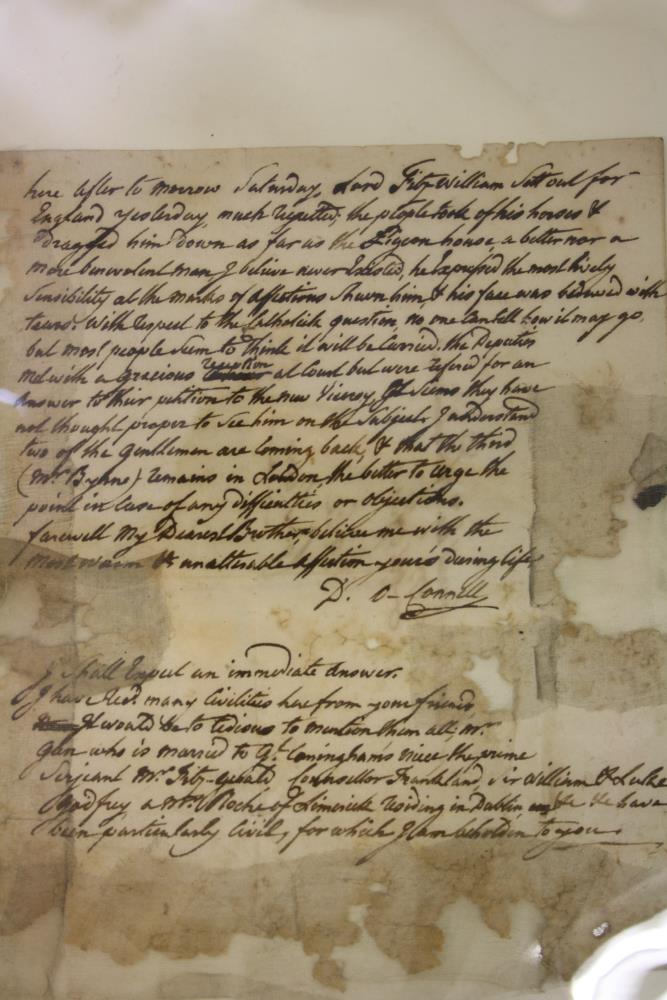 here after to morrow Saturday, Lord Fitz William Sett out for
England yesterday, much regretted; the people took of his horses &
Dragged him down as far as the Pigeon house, a better nor a
more benevolent man I believe never Existed, he Expressed the most lively
Sensibility at the marks of affections Shewn him & his face was bedewed with
tears. With respect to the Catholick question, no one Can tell how it may go,
but most people Seem to think it will be Carried. the Deputies
met with a gracious reception at Court but were refered for an
Answer to their petition to the new Viceroy, It Seems they have
not thought proper to See him on the Subject, I understand
two of the gentlemen are Coming back, & that the third
(Mr. Byrne) remains in London, the better to urge the
point in Case of any difficulties or objections.
farewell My Dearest Brother, believe me with the
most warm & unalterable affection yours during life,
D. O-Connell
I Shall Expect an immediate Answer.
I have recd. many Civilities here from your friends
It would be to tedious to mention them all; Mr.
Glen who is married to Gl. Coninghams niece the prime
Serjeant Mr. Fitz-gerald Counsellor Frankland, Sir William & Luke
Godfrey a Mrs. Roche of Limerick residing in Dublin &c &c have
been particularly Civil, for which I am beholden to you.